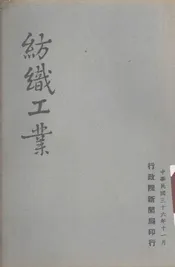 紡織工業
中華民國三十六年十一月
行政院新聞局印行